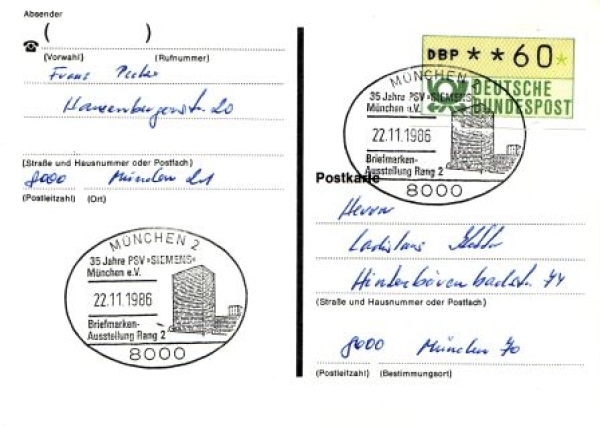 Absender
( )
(Vorwahl) (Rufnummer)
Franz
20
(Straße und Hausnummer oder Postfach)
8000 München 21
(Postleitzahl) (Ort)
MÜNCHEN 2
35 Jahre PSV »SIEMENS«
München e.V.
22.11.1986
Briefmarken-
Ausstellung Rang 2
8000
DBP **60*
DEUTSCHE
BUNDESPOST
MÜNCHEN 2
35 Jahre PSV »SIEMENS«
München e.V.
22.11.1986
Briefmarken-
Ausstellung Rang 2
8000
Postkarte
Herrn
Ladislaus
Hinterbärenbadstr. 74
(Straße und Hausnummer oder Postfach)
8000 München 70
(Postleitzahl) (Bestimmungsort)